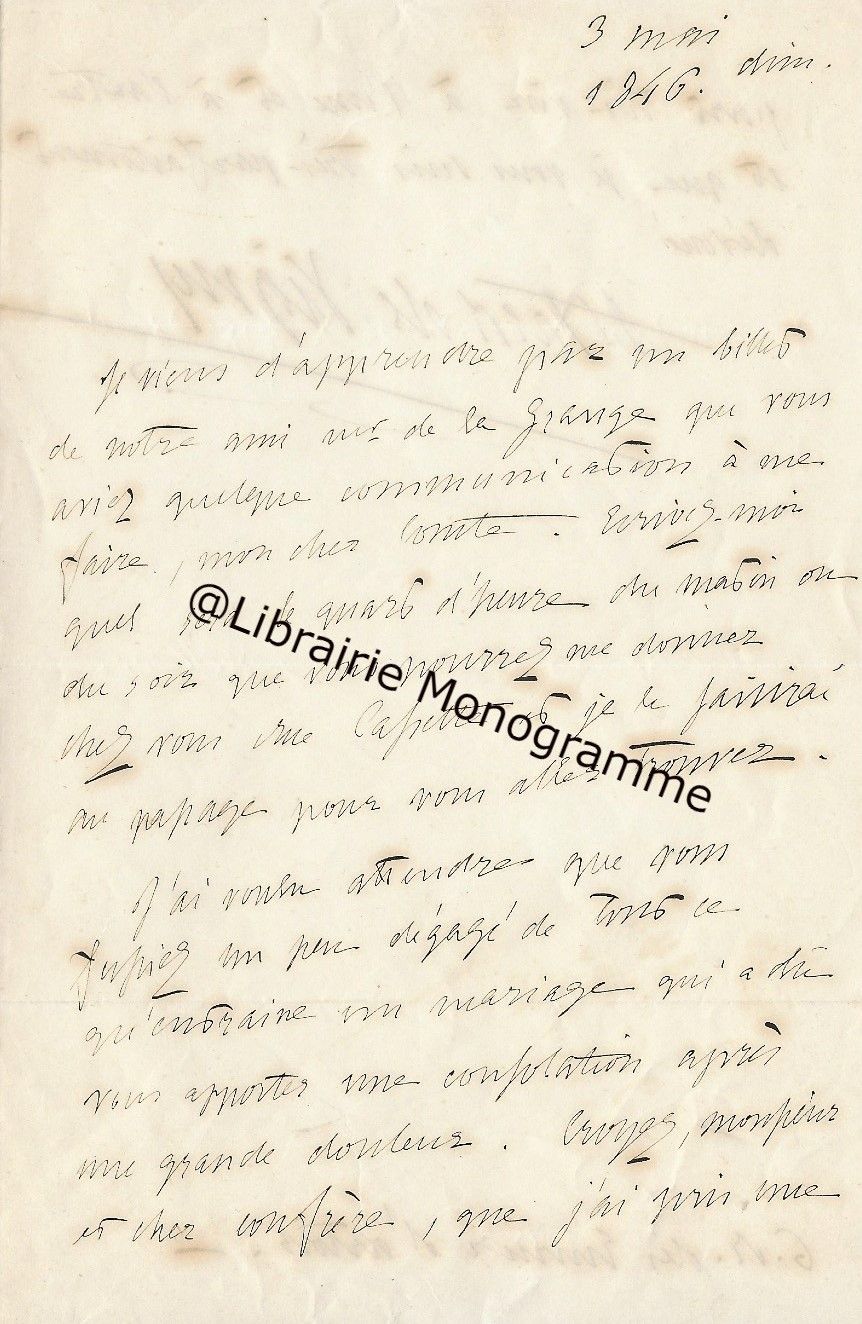 3 mai
dim.
1846.
Je viens d'apprendre par un billet
de notre ami mr de la Grange que vous
aviez quelque communication à me
faire, mon cher Comte. Ecrivez-moi
quel sera le quart d'heure du matin ou
du soir que vous pourrez me donner
chez vous rue Cassette et je le saisirai
au passage pour vous aller trouver.
J'ai voulu attendre que vous
fussiez un peu dégagé de tout ce
qu'entraine un mariage qui a dû
vous apporter une consolation après
une grande douleur. Croyez, monsieur
et cher confrère, que j'ai pris une
@Librairie Monogramme